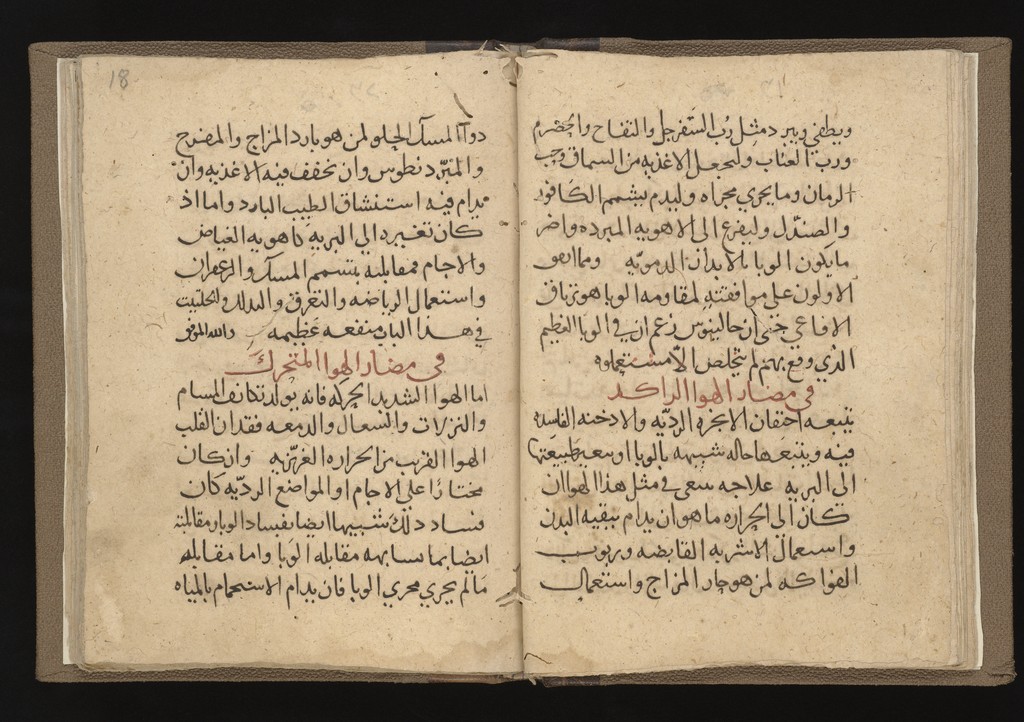 ويطفي ويبرد مثل رُب السَفرجل والتفاح والحصرم
ورب العناب وليجعل الاغذيه من السماق وحب
الرمان وما يجري مجراه وليدم بشمم الكافور
والصندل وليفزع الى الاهويه المبرده واضر
ما يكون الوبا بالابدان الدمويّه ومما
الاولون على موافقته لمقاومه الوبا هو ترياق
الافاعي حتى ان جالينوس زعم ان في الوبا العظيم
الذي وقع بهم لم يتخلص الا مستعملوه
في مضار الهوا الراكد
يتبعه احتقان الابخره الرديّه والادخنه الفاسده
فيه ويتبعها حاله شبيهه بالوبا طبيعتها
الى البريه علاجه ينبغي في مثل هذا الهوا ان
كان الى الحراره ما هو ان يدام بنقيه البدن
واستعمال الاشربه القابضه وربوب
الفواكه لمن هو حار المزاج واستعمال
18
دوآ المسك الحلو لمن هو بارد المزاج والمفرح
والمثرديطوس وان تخفف فيه الاغذيه وان
يدام فيه استنشاق الطيب البارد واما اذ
كان تغيره الى البريه كاهويه الغياض
والاجام فمقابلته بتشمم المسك والزعفران
واستعمال الرياضه والتعرق والدلك والحلتيت
في هذا الباب منفعه عظيمه والله الموفق
في مضار الهوا المتحرك
اما الهوا الشديد الحركه فانه يولد تكاثف المسام
والنزلات والسعال والدمعه فقدان القلب
الهوا القريب من الحراره الغريزيه وان كان
مختارًا على الاجام او المواضع الرديّه كان
فساد ذلك شبيها ايضا بفساد الوبا ومقابلته
ايضا بما سابهه مقابله الوبا واما مقابله
ما لم يجري مجري الوبا فان يدام الاستحمام بالمياه